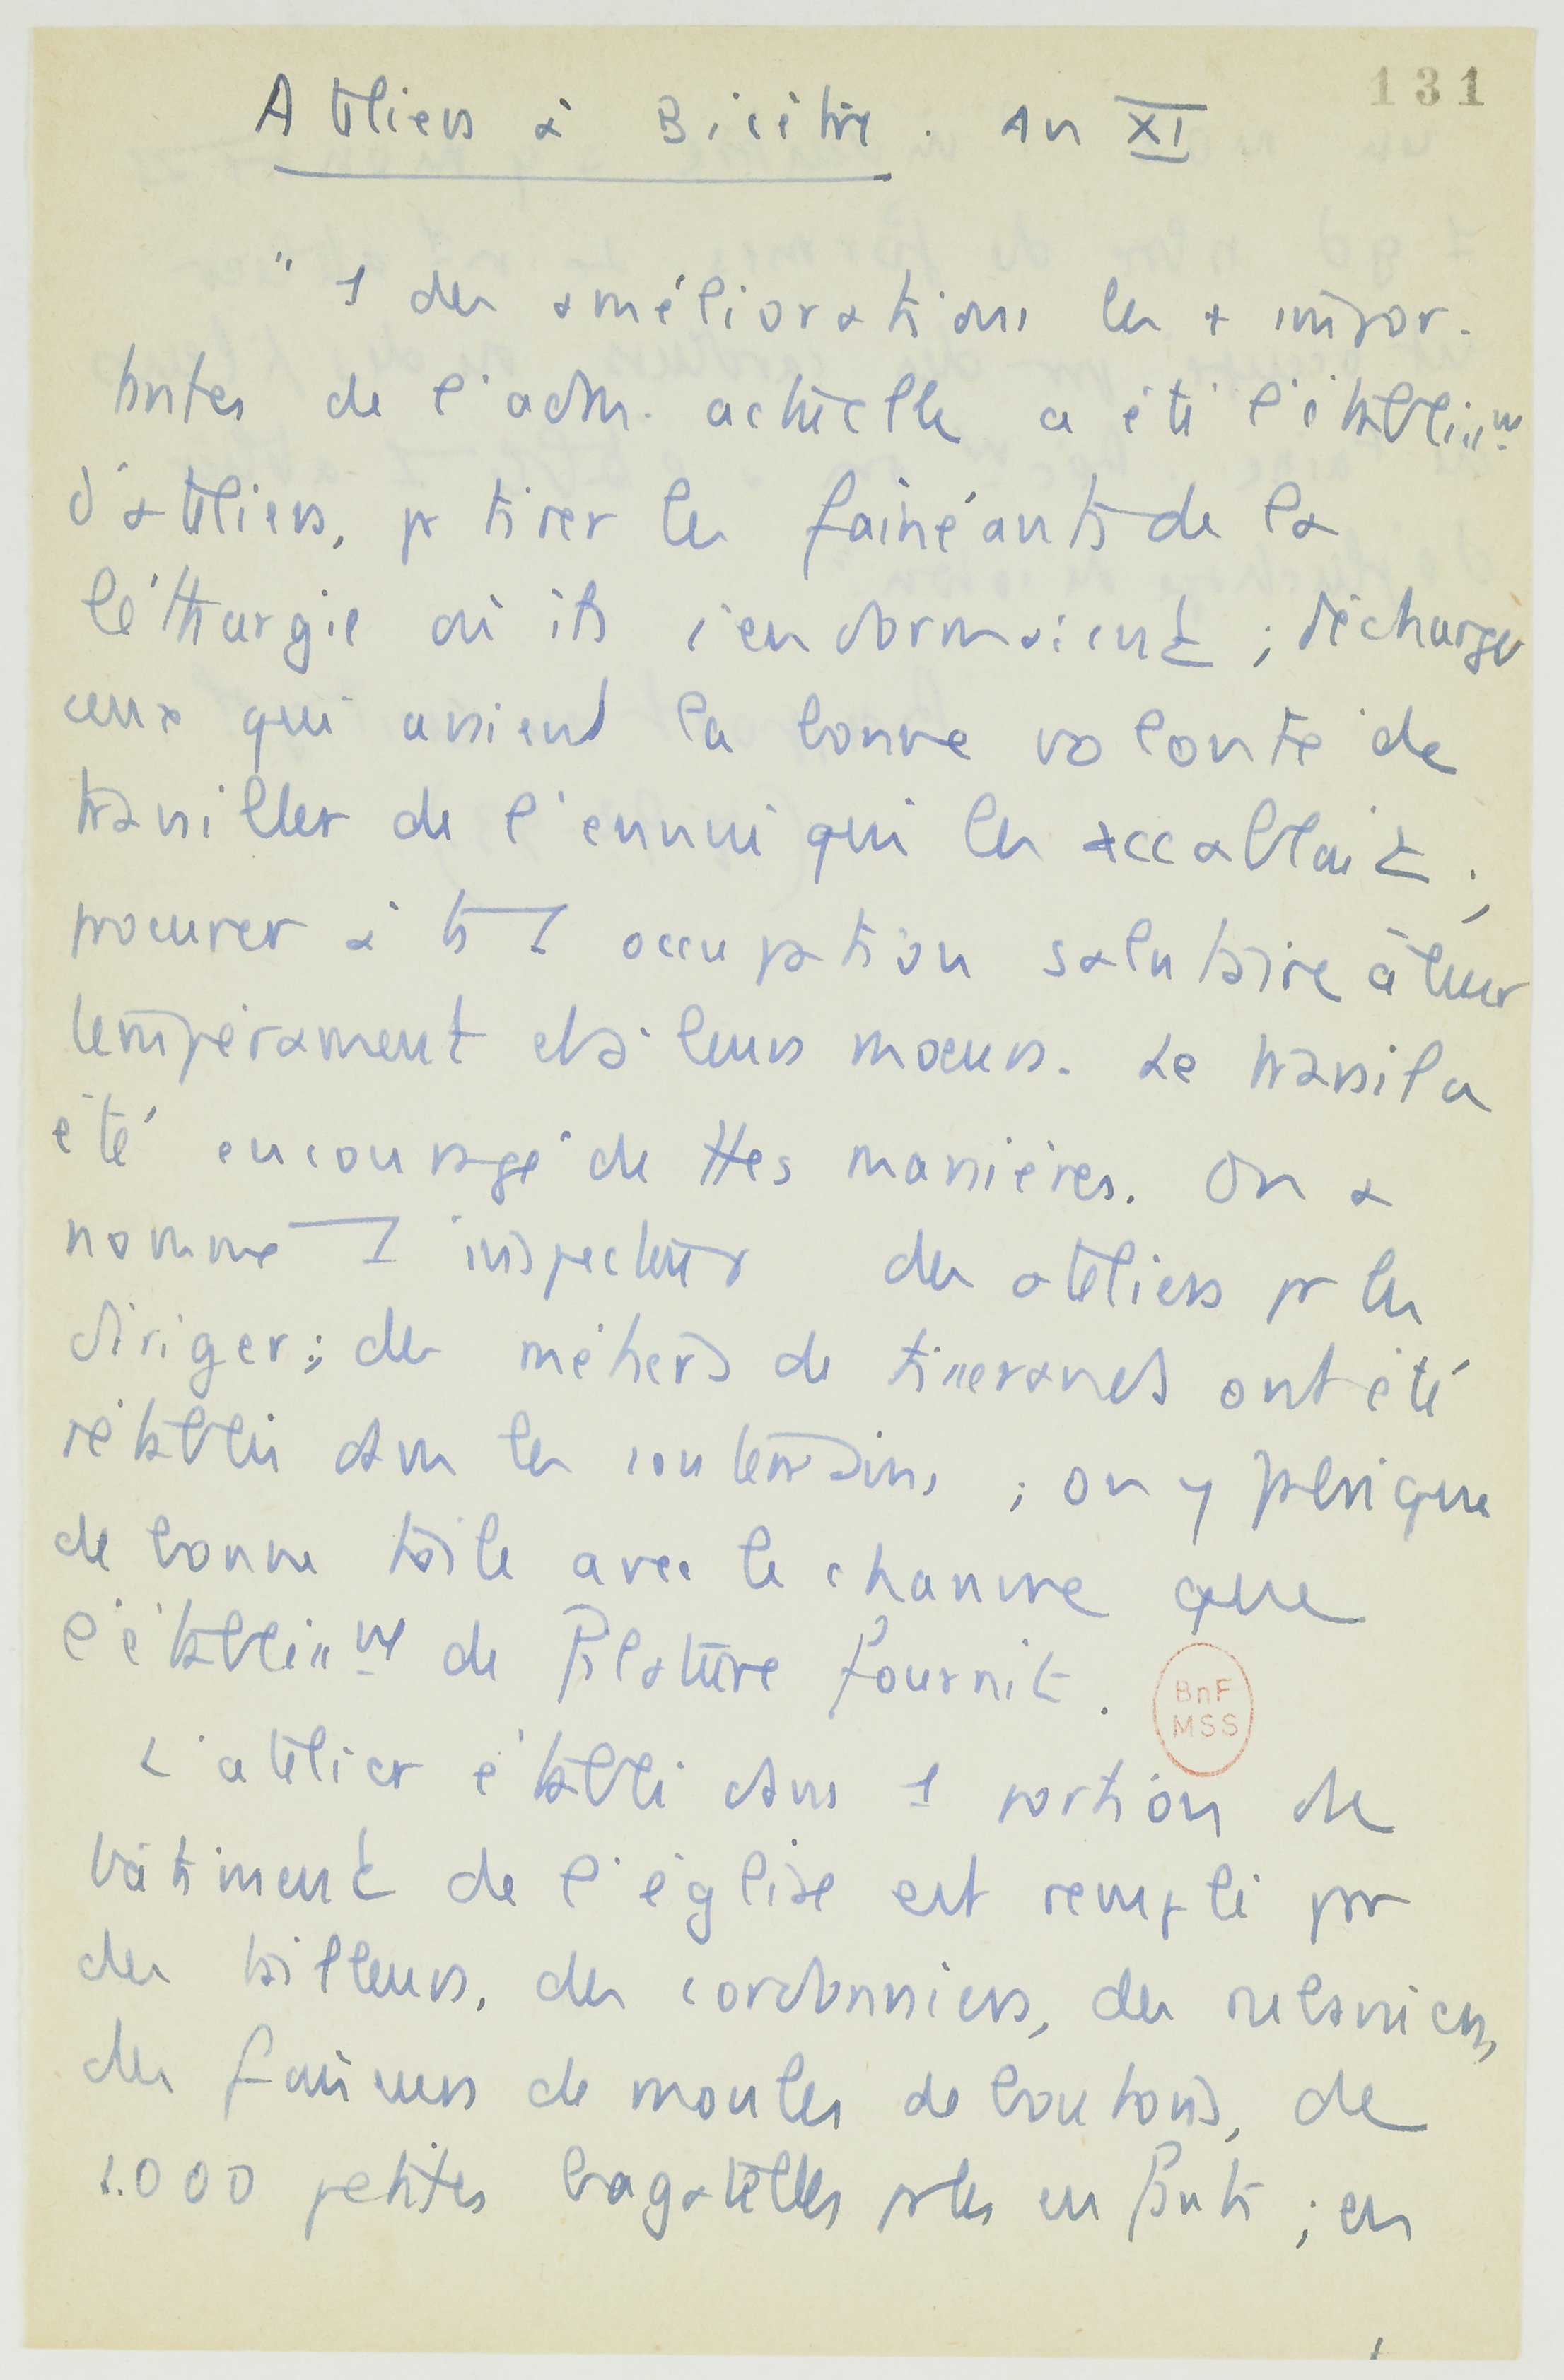 131
Ateliers à Bicêtre. An XI
" 1 des améliorations les + impor-
tantes de l'adm. actuelle a été l'établissmt
d'ateliers, pr tirer les fainéants de la
léthargie où ils s'endormaient ; décharger
ceux qui avaient la bonne volonté de
travailler de l'ennui qui les accablait ;
procurer à ts 1 occupation salutaire à leur
tempérament et à leurs moeurs. Le travail a
été encouragé de ttes manières. On a
nommé 1 inspecteur des ateliers pr les
diriger ; des métiers de tisserands ont été
rétablis dans les souterrains ; on y fabrique
de bonne toile avec le chanvre que
l'établissmt de filature fournit.
BnF
MSS
L'atelier établi dans 1 portion de
bâtiment de l'église est rempli par
des tailleurs, des cordonniers, des rubaniers,
des faiseurs de moules de boutons, de
1.000 petites bagatelles pr les enfants ; en